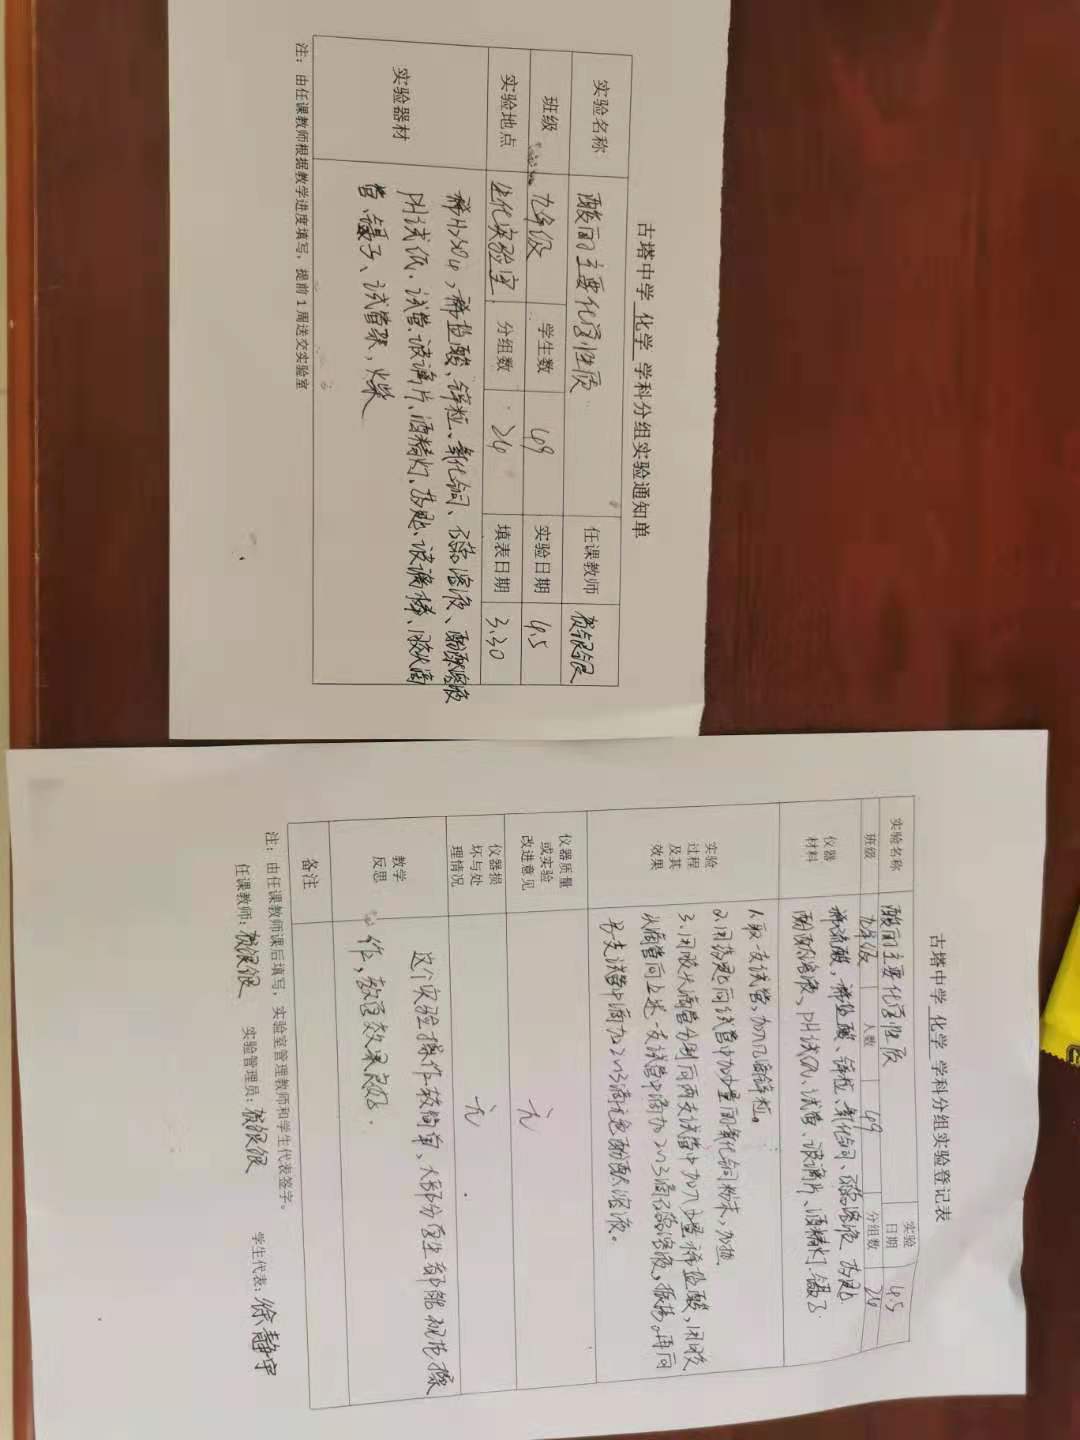 古塔中学 化学 学科分组实验通知单
实验名称 酸的主要化学性质 任课教师 贺银银
班级 九年级 学生数 49 实验日期 4.5
实验地点 生化实验室 分组数 24 填表日期 3.30
实验器材
稀H2SO4,稀盐酸、锌粒、氧化铜、石蕊溶液、酚酞溶液
PH试纸、试管、玻璃片、酒精灯、药匙、玻璃棒、胶头滴
管、镊子、试管架,火柴
注:由任课教师根据教学进度填写,提前1周送交实验室
古塔中学 化学 学科分组实验登记表
实验名称 酸的主要化学性质 实验日期 4.5
班级 九年级 人数 49 分组数 24
仪器材料
稀硫酸,稀盐酸、锌粒、氧化铜、石蕊溶液 药匙
酚酞溶液、PH试纸、试管、玻璃片、酒精灯 镊子
实验过程及其效果
1.取一支试管,加入几滴锌粒。
2.用药匙向试管中加少量的氧化铜粉末,加热
3.用胶头滴管分别向两支试管中加入少量稀盐酸,用胶
头滴管向上述一支试管中滴加2~3滴石蕊溶液,振荡。再向
另支试管中滴加2~3滴无色酚酞溶液。
仪器质量或实验改进意见 无
仪器损坏与处理情况 无
教学反思
这个实验操作较简单、大部分学生都能规范操
作,教学效果较好.
备注
注:由任课教师课后填写,实验室管理教师和学生代表签字。
任课教师:贺银银 实验管理员:贺银银 学生代表:徐静宇